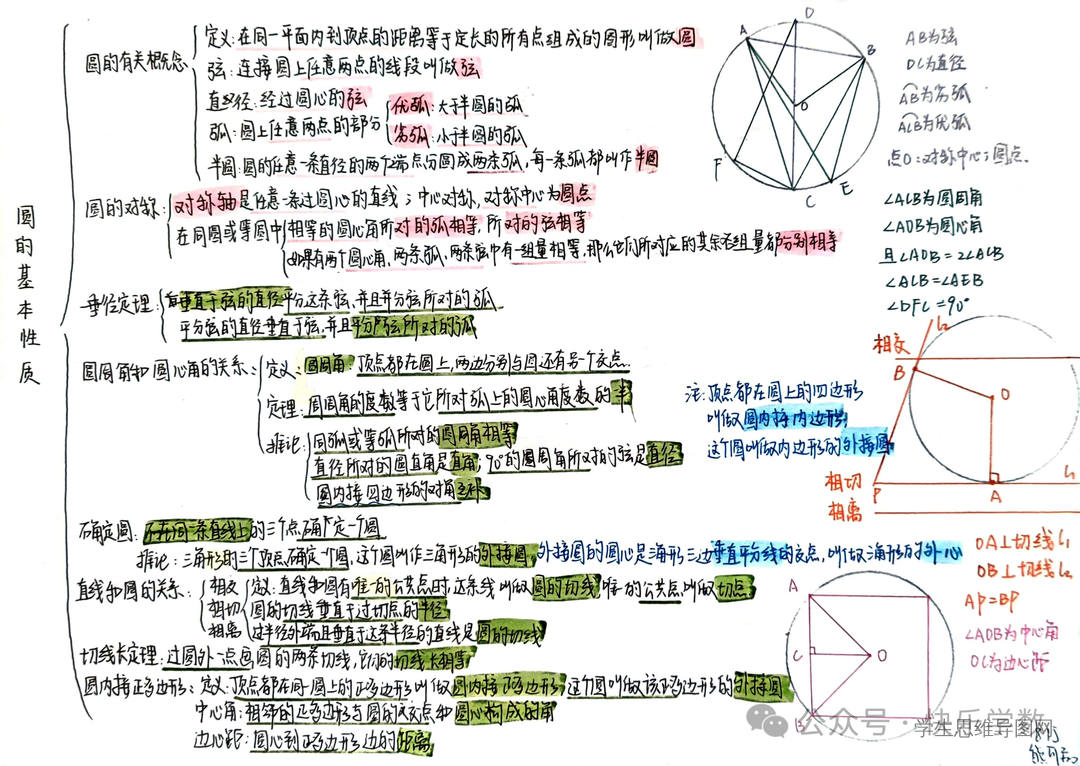 圆的基本性质
圆的有关概念
定义:在同一平面内到顶点的距离等于定长的所有点组成的图形叫做圆
弦:连接圆上任意两点的线段叫做弦
直径:经过圆心的弦
弧:圆上任意两点的部分
优弧:大于半圆的弧
劣弧:小于半圆的弧
半圆:圆的任意一条直径的两个端点分圆成两条弧,每一条弧都叫作半圆
圆的对称:
对称轴是任意一条过圆心的直线;中心对称,对称中心为圆点
在同圆或等圆中
相等的圆心角所对的弧相等,所对的弦相等
如果有两个圆心角、两条弧、两条弦中有一组量相等,那么它们所对应的其余各组量都分别相等
垂径定理:
垂直于弦的直径平分这条弦,并且平分弦所对的弧
平分弦的直径垂直于弦,并且平分弦所对的弧
圆周角和圆心角的关系:
定义:圆周角:顶点都在圆上,两边分别与圆还有另一个交点
定理:圆周角的度数等于它所对弧上的圆心角度数的一半
推论:
同弧或等弧所对的圆周角相等
直径所对的圆直角是直角;90°的圆周角所对的弦是直径
圆内接四边形的对角互补
确定圆:不在同一条直线上的三个点确定一个圆
推论:三角形的三个顶点确定一个圆,这个圆叫作三角形的外接圆,外接圆的圆心是三角形三边垂直平分线的交点,叫做三角形的外心
直线和圆的关系:
相交
相切
相离
定义:直线和圆有唯一的公共点时,这条线叫做圆的切线,唯一的公共点,叫做切点
圆的切线垂直于过切点的半径
过半径外端且垂直于这条半径的直线是圆的切线
切线长定理:过圆外一点画圆的两条切线,它们的切线长相等
圆内接正多边形:定义:顶点都在同一圆上的正多边形叫做圆内接正多边形,这个圆叫做该正多边形的外接圆
中心角:相邻的正多边形与圆的交点和圆心构成的角
边心距:圆心到正多边形边的距离
D
A
B
O
F
C
E
AB为弦
DC为直径
AB为劣弧
ACB为优弧
点O:对称中心;圆点.
∠ACB为圆周角
∠AOB为圆心角
且∠AOB=2∠ACB
∠ACB=∠AEB
∠DFC=90°
注:顶点都在圆上的四边形
叫做圆内接内边形,
这个圆叫做内边形的外接圆
相交
l₂
B
O
l₁
相切
P
A
相离
OA⊥切线l₁
OB⊥切线l₂
AP=BP
∠AOB为中心角
OC为边心距
A
C
O
B
公众号·快乐学数
学生思维导图网